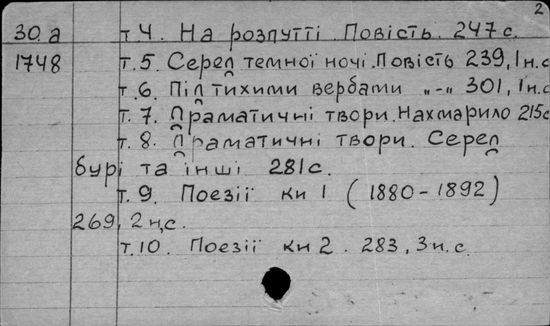 2
30.а т 4. На розпутті. Повість. 247 с.
1748 т.5. Серед темної ночі. Повість 239, 1н.с
т.6. Під тихими вербами „-„ 301, 1н.с
т.7. Драматичні твори. Нахмарило 215с
т.8. Драматичні твори. Серед
бурі та інші 281с.
т.9. Поезії ки 1 (1880-1892)
269, 2н,с.
т.10. Поезії ки 2. 283, 3н.с.